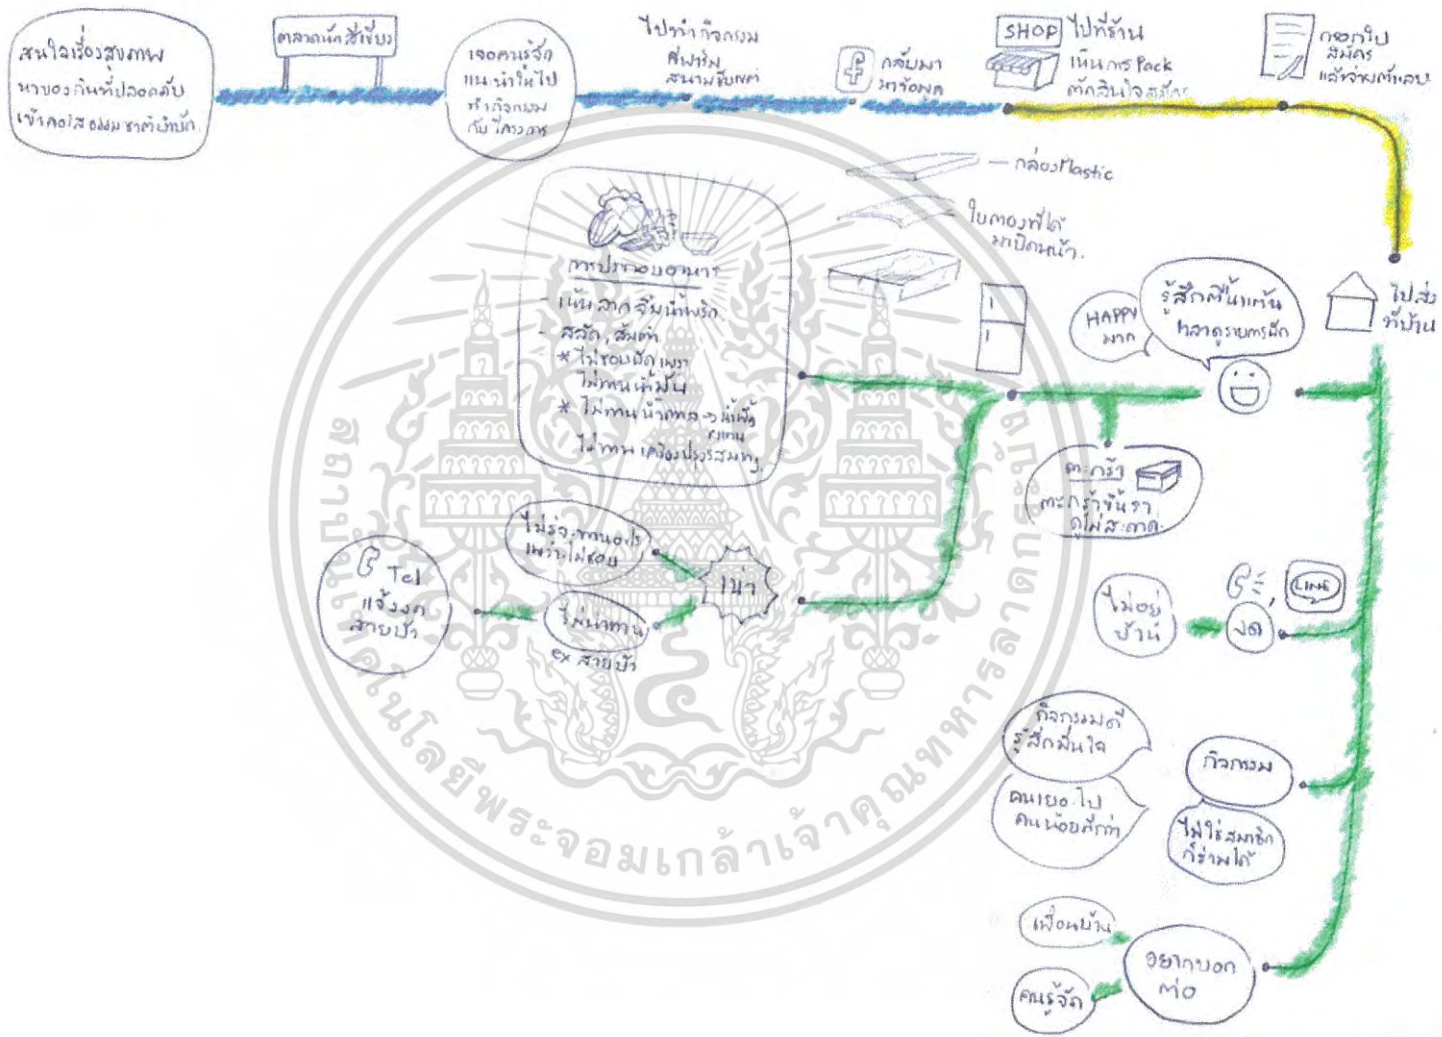 สนใจเรื่องสุขภาพ
หาของกินที่ปลอดภัย
เข้าคอร์สธรรมชาติบำบัด
ตลาดนัดสีเขียว
เจอคนรู้จัก
แนะนำให้ไป
ทำกิจกรรม
กับโครงการ
ไปทำกิจกรรม
ที่ฟาร์ม
สนามชัยเขต
กลับมา
หาข้อมูล
SHOP ไปที่ร้าน
เห็นการ Pack
ตัดสินใจสมัคร
กรอกใบ
สมัคร
แล้วจ่ายเงินเลย
กล่อง Plastic
ใบตองที่ได้
มาปิดหน้า
การประกอบอาหาร
- เน้น ลวก จิ้มน้ำพริก
- สลัด, ส้มตำ
* ไม่ชอบผัด เพราะ
ไม่ทานน้ำมัน
* ไม่ทานน้ำตาล → น้ำผึ้ง
แทน
ไม่ทานเครื่องปรุงรส
HAPPY
มาก
รู้สึกตื่นเต้น
เวลาดูรายการผัก
ไปส่ง
ที่บ้าน
ตะกร้า
ตะกร้าขึ้นรา
ดูไม่สะอาด
ไม่รู้จะทานอะไร
เพราะไม่ชอบ
เน่า
Tel
แจ้งงด
สายบัว
ไม่น่าทาน
ex สายบัว
ไม่อยู่
บ้าน
งด
LINE
กิจกรรมดี
รู้สึกมั่นใจ
กิจกรรม
คนเยอะไป
คนน้อยดีกว่า
ไม่ใช่สมาชิก
ก็ร่วมได้
เพื่อนบ้าน
อยากบอก
ต่อ
คนรู้จัก
สถาบันเทคโนโลยีพระจอมเกล้าเจ้าคุณทหารลาดกระบัง